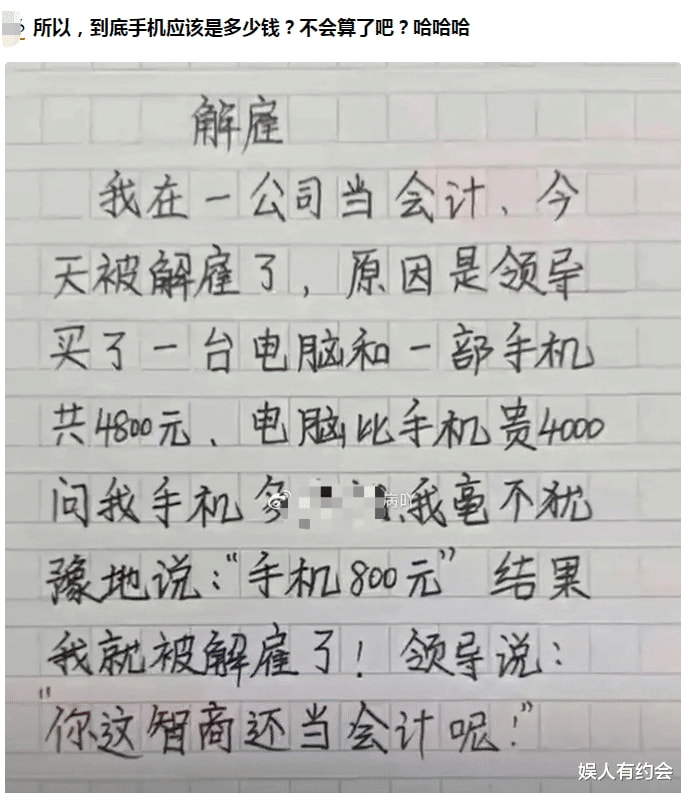 所以，到底手机应该是多少钱？不会算了吧？哈哈哈
解雇
我在一公司当会计、今
天被解雇了，原因是领导
买了一台电脑和一部手机
共4800元、电脑比手机贵4000
问我手机多 我毫不犹
豫地说：“手机800元”结果
我就被解雇了！领导说：
“你这智商还当会计呢！”
病吖
娱人有约会